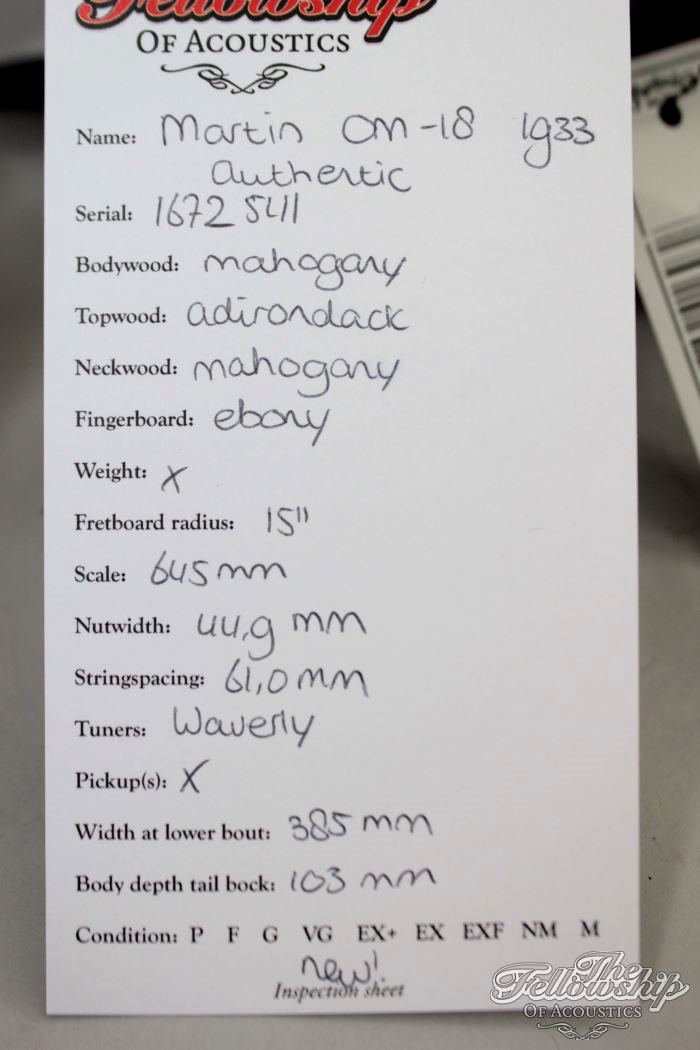 Fellowship
OF ACOUSTICS
Name: Martin OM-18 1933
Authentic
Serial: 16725411
Bodywood: mahogany
Topwood: adirondack
Neckwood: mahogany
Fingerboard: ebony
Weight: X
Fretboard radius: 15"
Scale: 645 mm
Nutwidth: 44,9 mm
Stringspacing: 61,0 mm
Tuners: Waverly
Pickup(s): X
Width at lower bout: 385 mm
Body depth tail bock: 103 mm
Condition: P F G VG EX+ EX EXF NM M
new!
Inspection sheet
The
Fellowship
OF ACOUSTICS